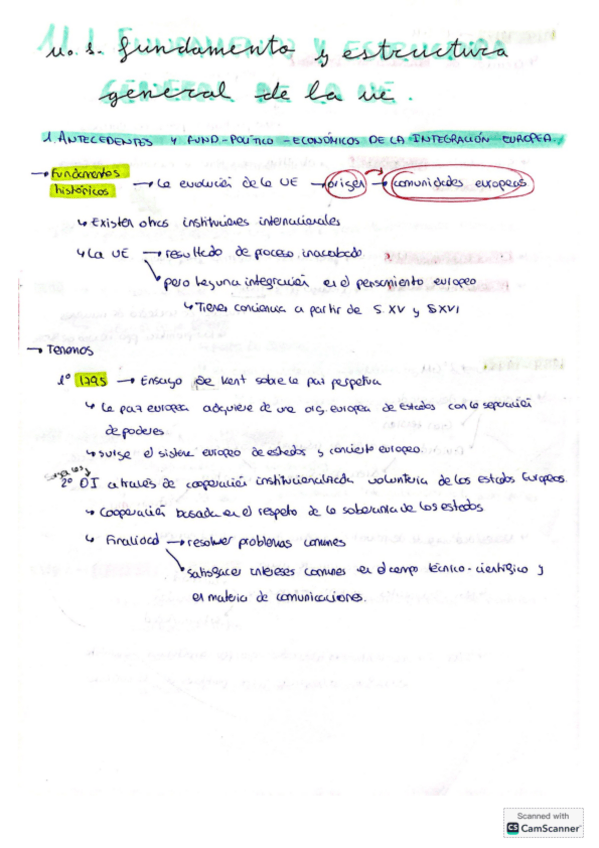 U.D. 1. Fundamento y estructura
general de la UE.
1. ANTECEDENTES Y FUND-POLÍTICO-ECONÓMICOS DE LA INTEGRACIÓN EUROPEA.
→ Fundamentos
históricos → La evolución de la UE → origen → comunidades europeas
↳ Existen otras instituciones internacionales
↳ La UE → resultado de proceso inacabado
↘ pero hay una integración en el pensamiento europeo
↳ Tienen conciencia a partir de S. XV y S XVI
→ Tenemos
1º 1795 → Ensayo de Kant sobre la paz perpetua
↳ La paz europea adquiere de una org. europea de Estados con la separación
de poderes.
↳ surge el sistema europeo de estados y concierto europeo.
2º OI a través de cooperación institucionalizada voluntaria de los estados Europeos.
↳ Cooperación basada en el respeto de la soberanía de los estados
↳ Finalidad → resolver problemas comunes
↘ satisfacer intereses comunes en el campo técnico-científico y
en materia de comunicaciones.
Scanned with
CS CamScanner